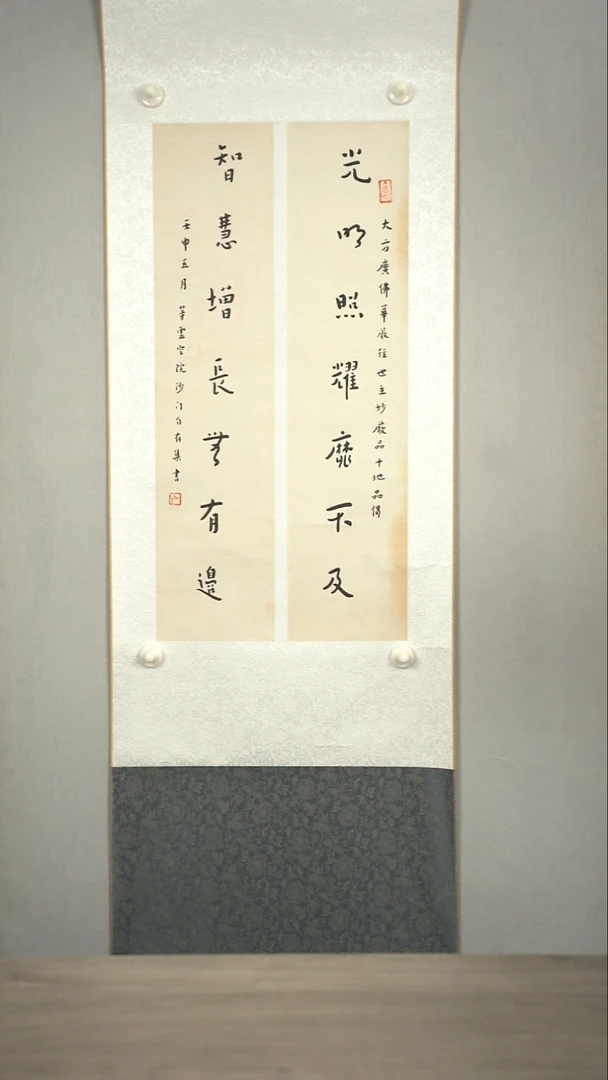 大方廣佛華嚴經世主妙嚴品十地品偈
光明照耀靡不及
智慧增長無有邊
壬申五月 院沙門自在集書